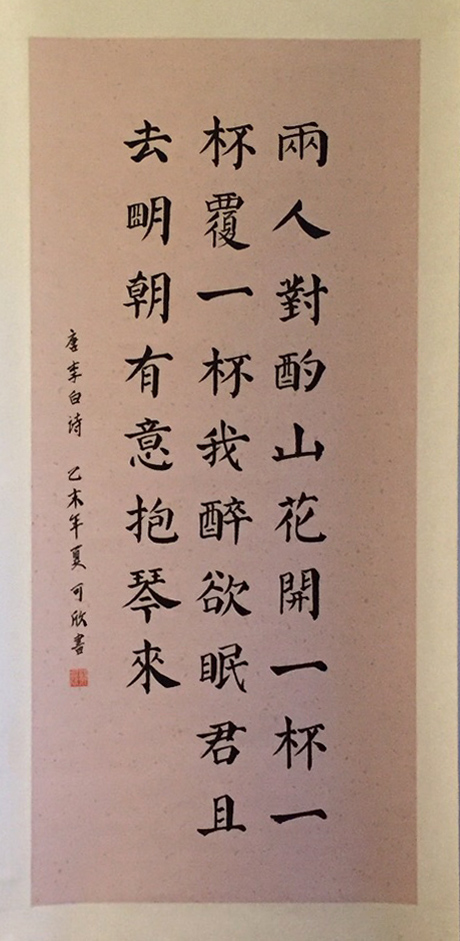 兩人對酌山花開一杯一
杯覆一杯我醉欲眠君且
去明朝有意抱琴來
唐李白诗 乙未年夏可欣書